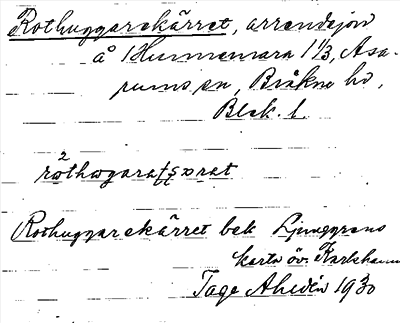 Rothuggarekärret, arrendejord
å Hunnemara 1 1/3, Asa-
rums sn, Bräkne hd,
Blek. l.
2
rothogara
Rothuggarekärret bek Ljunggrens
karta öv. Karlshamn
Tage Ahldén 1930